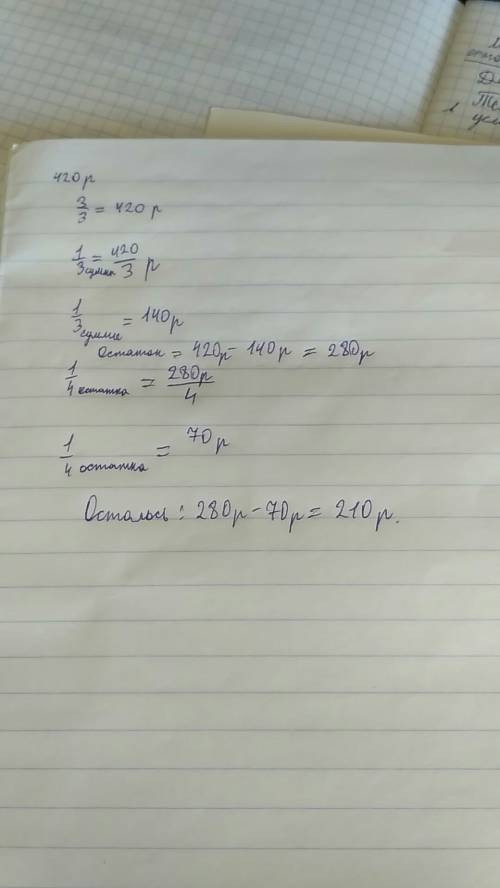 420 р
3/3 = 420 р
1/3 суммы = 420/3 р
1/3 суммы = 140р
Остаток = 420р - 140р = 280р
1/4 остатка = 280р/4
1/4 остатка = 70р
Осталось: 280р - 70р = 210р.